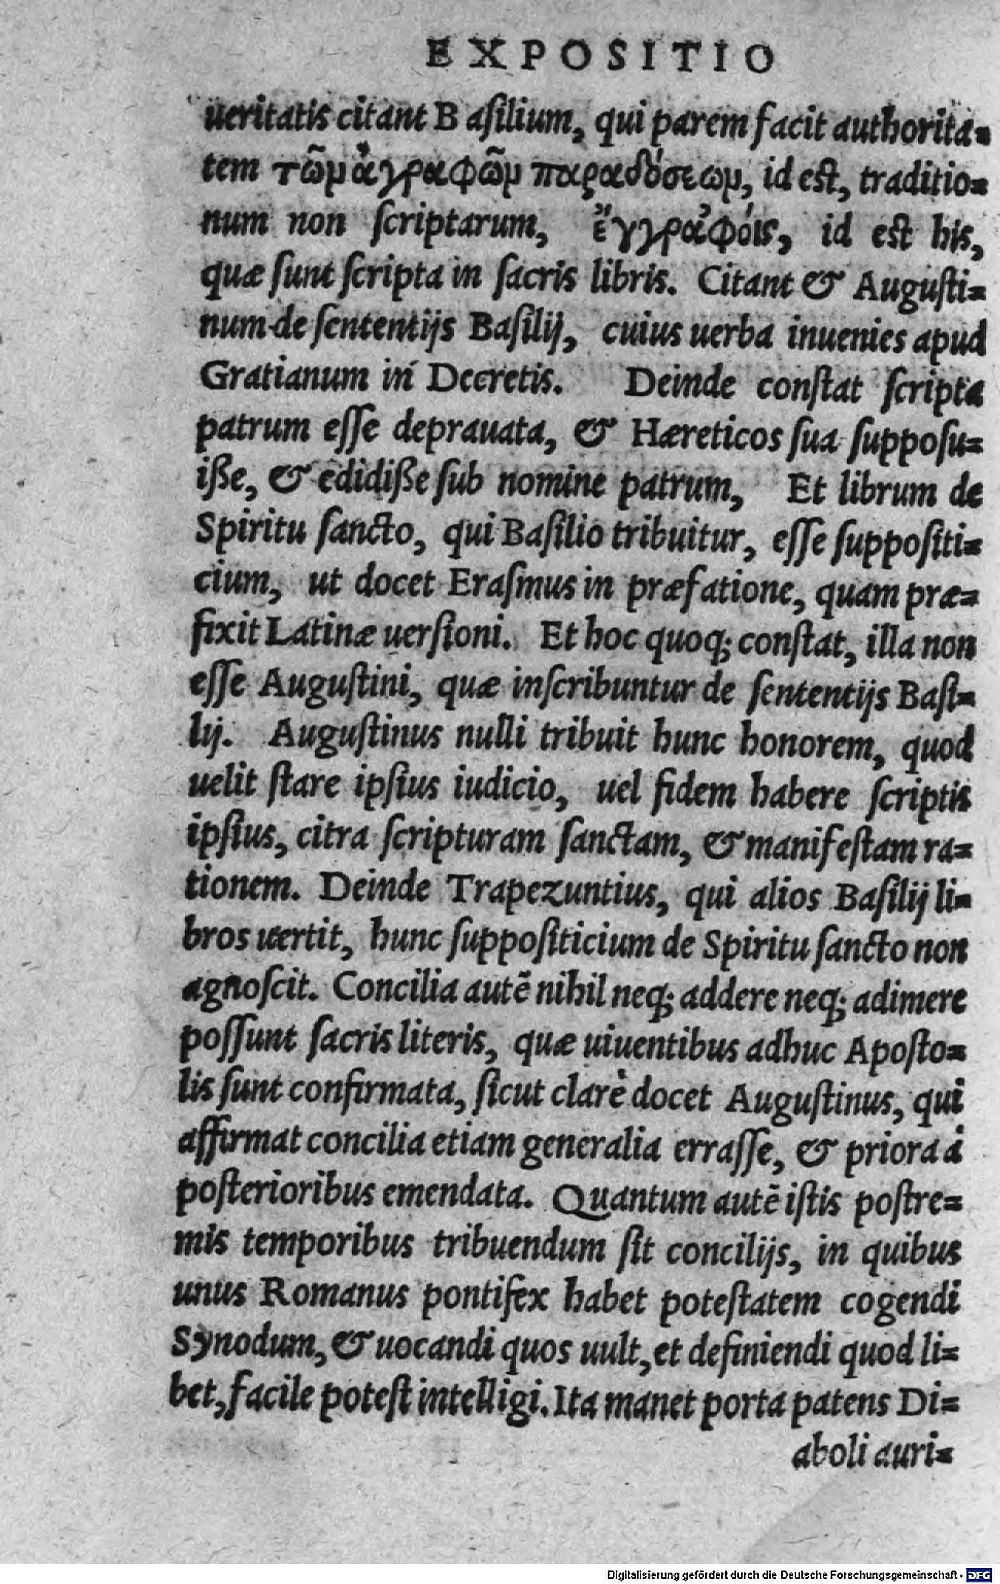 EXPOSITIO
ueritatis citant Basilium, qui parem facit authorita=
tem τῶμ ἀγραφῶμ παραδόσεωμ, id est, traditio=
num non scriptarum, ἔγγράφοις, id est his,
quæ sunt scripta in sacris libris. Citant & Augusti=
num de sententijs Basilij, cuius uerba inuenies apud
Gratianum in Decretis. Deinde constat scripta
patrum esse deprauata, & Hæreticos sua supposu=
isse, & edidisse sub nomine patrum, Et librum de
Spiritu sancto, qui Basilio tribuitur, esse suppositi=
cium, ut docet Erasmus in præfatione, quam præ=
fixit Latinæ uersioni. Et hoc quoq; constat, illa non
esse Augustini, quæ inscribuntur de sententijs Basi=
lij. Augustinus nulli tribuit hunc honorem, quod
uelit stare ipsius iudicio, uel fidem habere scriptis
ipsius, citra scripturam sanctam, & manifestam ra=
tionem. Deinde Trapezuntius, qui alios Basilij li=
bros uertit, hunc suppositicium de Spiritu sancto non
agnoscit. Concilia autẽ nihil neq; addere neq; adimere
possunt sacris literis, quæ uiuentibus adhuc Aposto=
lis sunt confirmata, sicut clarè docet Augustinus, qui
affirmat concilia etiam generalia errasse, & priora à
posterioribus emendata. Quantum autẽ istis postre=
mis temporibus tribuendum sit concilijs, in quibus
unus Romanus pontifex habet potestatem cogendi
Synodum, & uocandi quos uult, et definiendi quod li=
bet, facile potest intelligi. Ita manet porta patens Di=
aboli auri=
Digitalisierung gefördert durch die Deutsche Forschungsgemeinschaft - DFG